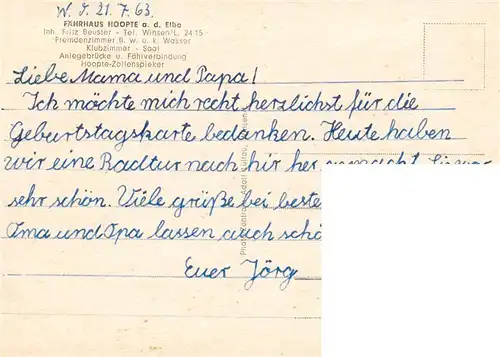 W. d. 21.7.63.
FÄHRHAUS HOOPTE a. d. Elbe
Inh. Fritz Beuster - Tel. Winsen/L. 24 15
Fremdenzimmer fl. w. u. k. Wasser
Klubzimmer - Saal
Anlegebrücke u. Fährverbindung
Hoopte-Zollenspieker
Liebe Mama und Papa!
Ich möchte mich recht herzlichst für die
Geburtstagskarte bedanken. Heute haben
wir eine Radtur nach hir her gemacht.
sehr schön. Viele grüße bei beste
Oma und Opa lassen auch schö
Euer Jörg